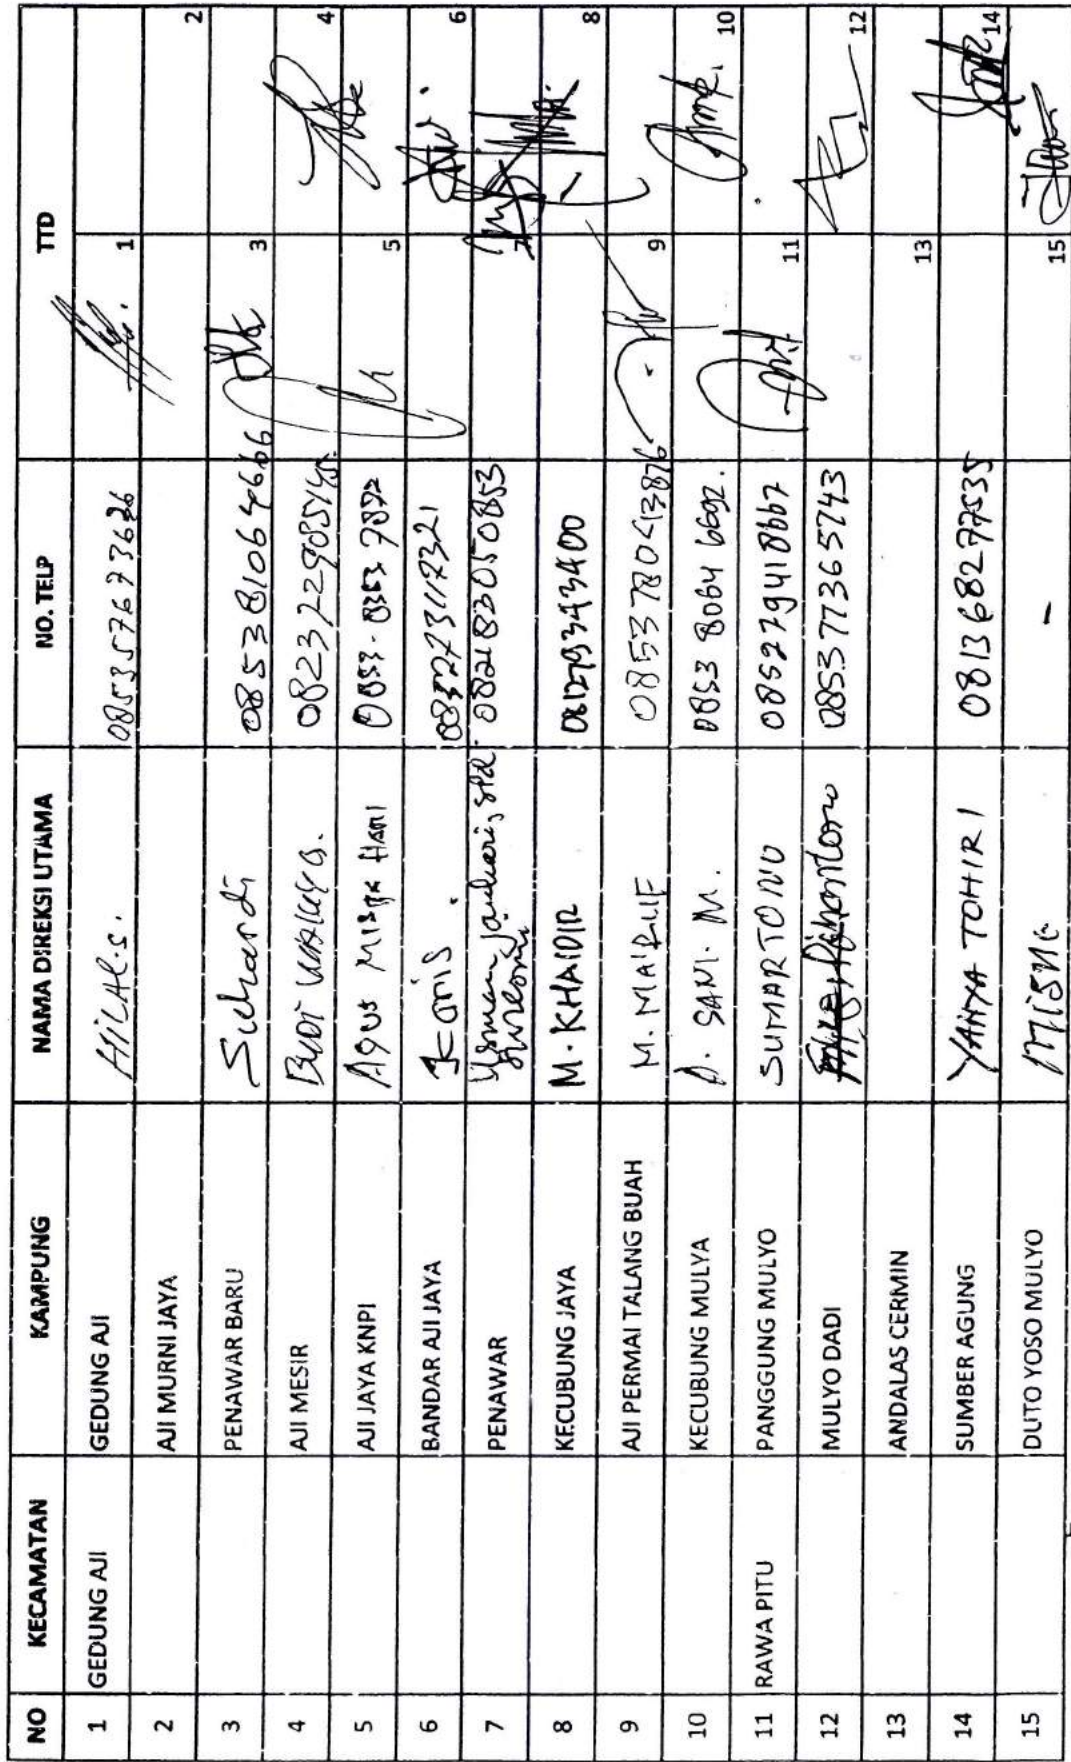 NO KECAMATAN KAMPUNG NAMA DIREKSI UTAMA NO. TELP TTD
1 GEDUNG AJI GEDUNG AJI HILAL.S. 085357673626 1
2 AJI MURNI JAYA 2
3 PENAWAR BARU Suhardi 085381064666 3
4 AJI MESIR BUDI 4
5 AJI JAYA KNPI AGUS 0853-8353 7872 5
6 BANDAR AJI JAYA 6
7 PENAWAR 082183050853 7
8 KECUBUNG JAYA M. KHAIDIR 081279343400 8
9 AJI PERMAI TALANG BUAH M. MARUF 085378043876 9
10 KECUBUNG MULYA SANI. M. 0853 8064 6692. 10
11 RAWA PITU PANGGUNG MULYO SUMARTONO 085279418667 11
12 MULYO DADI 085377365743 12
13 ANDALAS CERMIN 13
14 SUMBER AGUNG YAHYA TOHIRI 081368277535 14
15 DUTO YOSO MULYO MISNO - 15